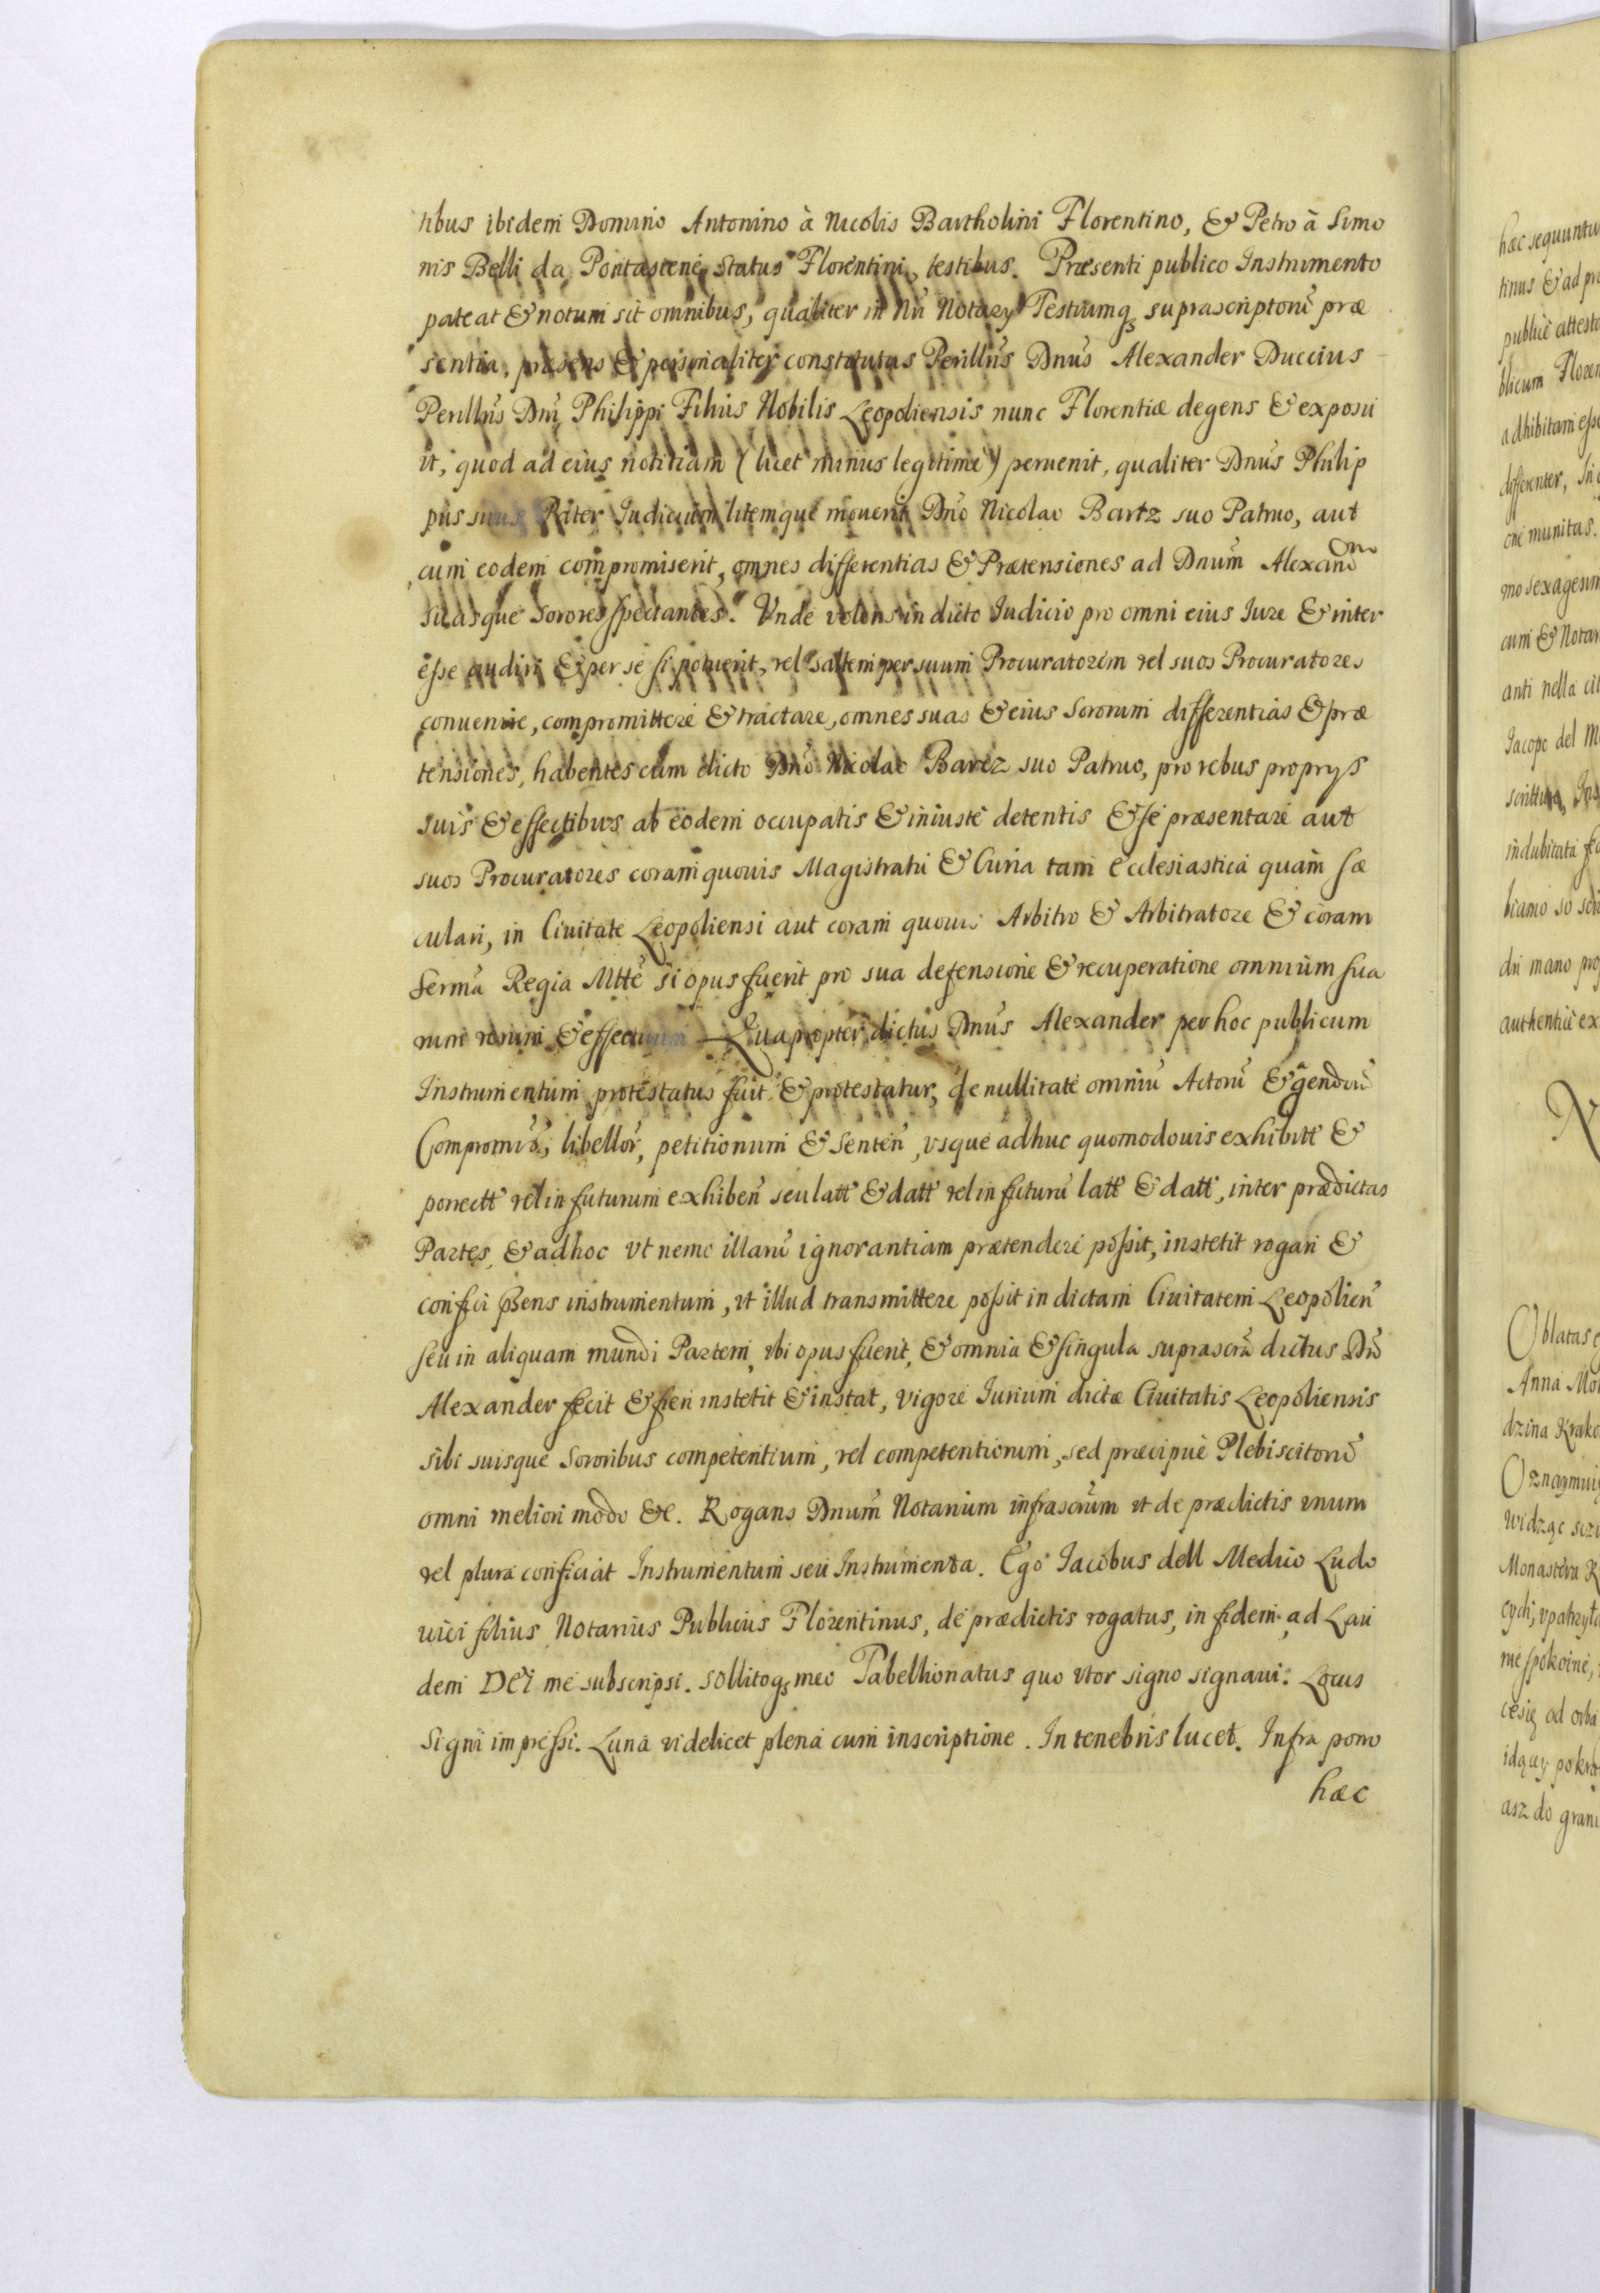 tibus ibidem Domino Antonino à Nicolis Bartholini Florentino, & Petro à Simo
nis Belli da Pontastene Status Florentini, testibus. Præsenti publico Instrumento
pateat & notum sit omnibus, qualiter in Nri Notary Testiumqꝫ suprascriptorũ præ
sentia, præsens & personaliter constitutus Perillris Dnus Alexander Duccius
Perillris Dni Philippi Filius Nobilis Leopoliensis nunc Florentiæ degens & exposu
it, quod ad eius notitiam (licet minus legitimè) peruenit, qualiter Dnus Philip
pus suus Pater Iudicium litemque mouerit Dno Nicolao Bartz suo Patruo, aut
cum eodem compromiserit, omnes differentias & Prætensiones ad Dnum Alexandrum
suasque Sorores spectantes. Vnde volens in dicto Iudicio pro omni eius Iure & inter
esse audiri & per se si potuerit, vel saltem per suum Procuratorem vel suos Procuratores
conuenire, compromittere & tractare, omnes suas & eius Sororum differentias & præ
tensiones, habentes cum dicto Dno Nicolao Bartz suo Patruo, pro rebus proprys
suis & effectibus ab eodem occupatis & iniustè detentis & se præsentare aut
suos Procuratores coram quouis Magistratu & Curia tam Ecclesiastica quam sæ
culari, in Ciuitate Leopoliensi aut coram quouis Arbitro & Arbitratore & coram
Serma Regia Mtte si opus fuerit pro sua defensione & recuperatione omnium sua
rum rerum & effectuum Quapropter dictus Dnus Alexander per hoc publicum
Instrumentum protestatus fuit & protestatur, de nullitate omniũ Actorũ & gendorũ
Compromiss, libellor, petitionum & Senten, vsque adhuc quomodouis exhibitt &
porrectt vel in futurum exhiben seu latt & datt vel in futurũ latt & datt, inter prædictas
Partes, & ad hoc vt nemo illarũ ignorantiam prætendere possit, instetit rogari &
confici pñs ens instrumentum, vt illud transmittere possit in dictam Ciuitatem Leopolien
seu in aliquam mundi Partem, vbi opus fuerit, & omnia & singula suprascra dictus Dns
Alexander fecit & fieri instetit & instat, vigore Iurium dictæ Ciuitatis Leopoliensis
sibi suisque Sororibus competentium, vel competentiorum, sed præcipuè Plebiscitorũ
omni meliori modo &c. Rogans Dnum Notarium infrascrum vt de prædictis vnum
vel plura conficiat Instrumentum seu Instrumenta. Ego Iacobus dell Medico Ludo
uici filius Notarius Publicus Florentinus, de prædictis rogatus, in fidem ad Lau
dem DEI me subscripsi. Sollitoqꝫ meo Tabellionatus quo vtor signo signaui: Locus
Signi impressi. Luna videlicet plena cum inscriptione. In tenebris lucet. Infra porro
hæc
hæc sequuntu
tinus & ad pr
publicè attesto
blicum Floren
adhibitam esse
differenter, In
one munitas.
mo sexagesim
cum & Notar
anti nella cit
Iacopo del M
scrittura, Ins
indubitata fed
dri mano prop
authenticè ex
Oblatas
Anna Mo
dzina Krako
Oznaymuię
widząc
Monastera
cych, vpatrzyła
me spokoine,
od orba
asz do grani